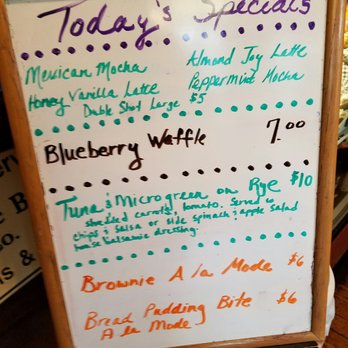 Today's Specials
Mexican Mocha
Almond Joy Latte
Honey Vanilla Latte
Peppermint Mocha
Duble Shot Large $5
Blueberry Waffle 7.00
Tuna & Microgreen on Rye $10
shredded carrots, tomato. Served w
chips & salsa or side spinach & apple salad
house balsamic dressing.
Brownie A la Mode $6
Bread Pudding Bite $6
A la Mode